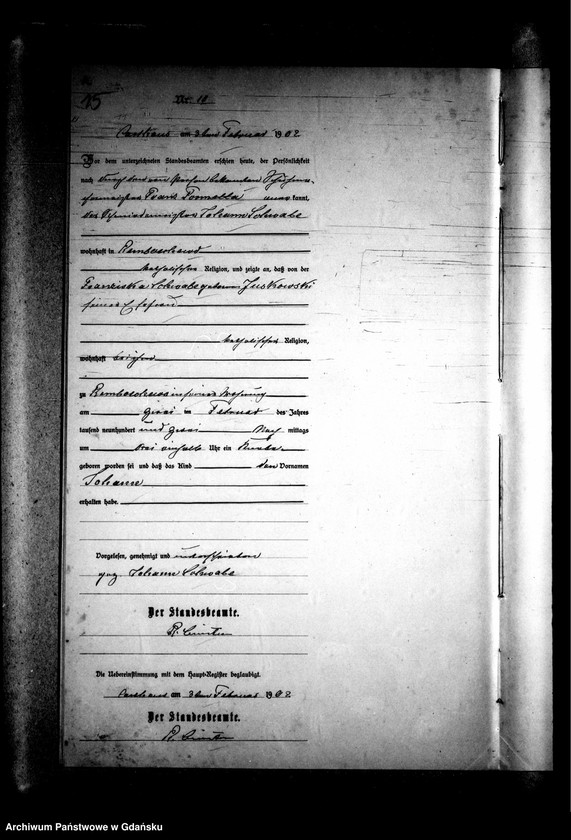 15
Nr. 10
Carthaus am 3ten Februar 1902
Vor dem unterzeichneten Standesbeamten erschien heute, der Persönlichkeit
nach durch den von Person bekannten
Franz anerkannt,
der Johann Schwabe
wohnhaft in
katholischer Religion, und zeigte an, daß von der
Franziska Schwabe geborenen Juskowski
seiner Ehefrau
katholischer Religion,
wohnhaft bei ihm
zu in seiner Wohnung
am zwei ten Februar des Jahres
tausend neunhundert und zwei Nach mittags
um drei einhalb Uhr ein Knabe
geboren worden sei und daß das Kind den Vornamen
Johann
erhalten habe.
Vorgelesen, genehmigt und unterschrieben
gez. Johann Schwabe
Der Standesbeamte.
Die Uebereinstimmung mit dem Haupt-Register beglaubigt.
Carthaus am 3ten Februar 1902
Der Standesbeamte.
Archiwum Państwowe w Gdańsku